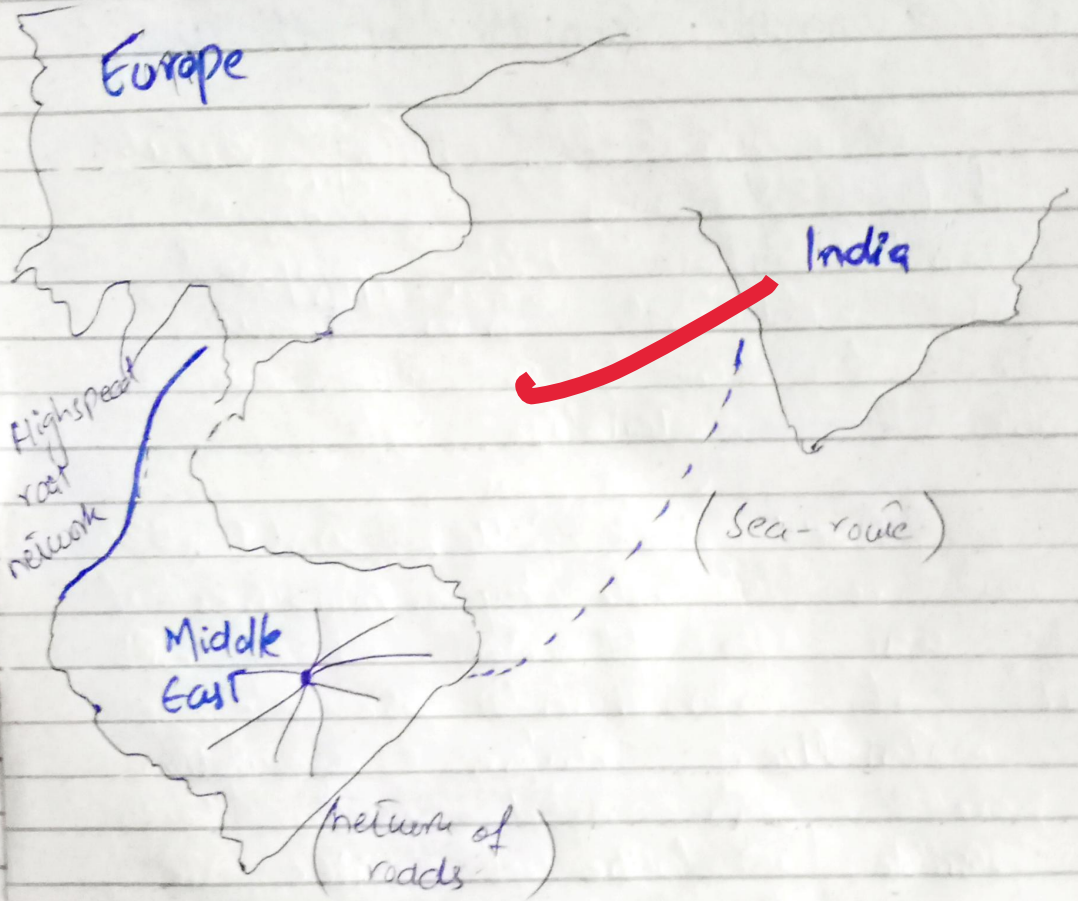 Europe
India
Highspeed
road
network
(Sea-route)
Middle
East
(network of
roads)